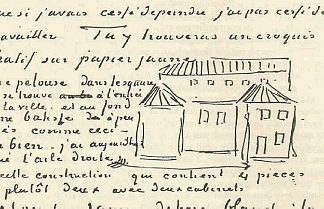 que si j'avais cessé de peindre j'ai pas cessé de
travailler Tu y trouveras un croquis
hatif sur papier jaune
ne pelouse dans le square
se trouve à l'entrée
la ville. et au fond
ne batisse à peu
ès comme ceci
bien. j'ai aujourd'hui
ué l'aile droite
cette construction qui contient 4 pieces
plutôt deux avec deux cabinets